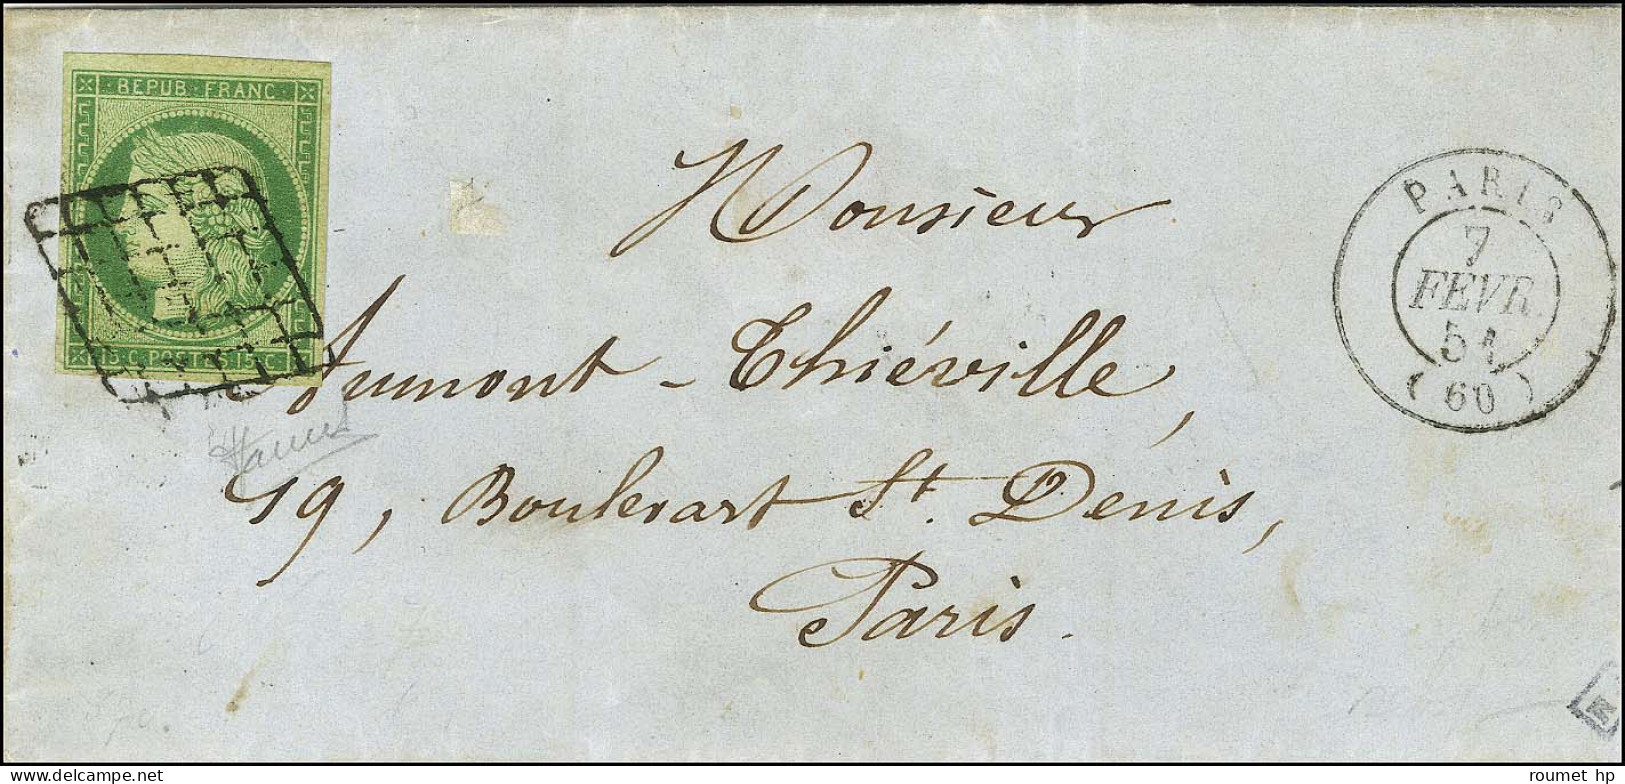 REPUB. FRANC.
15 c. POSTES 15 c.
PARIS
7
FEVR.
51
(60)
Monsieur
Aumont-Thiéville,
19, Boulevart St. Denis,
Paris.
roumet hp